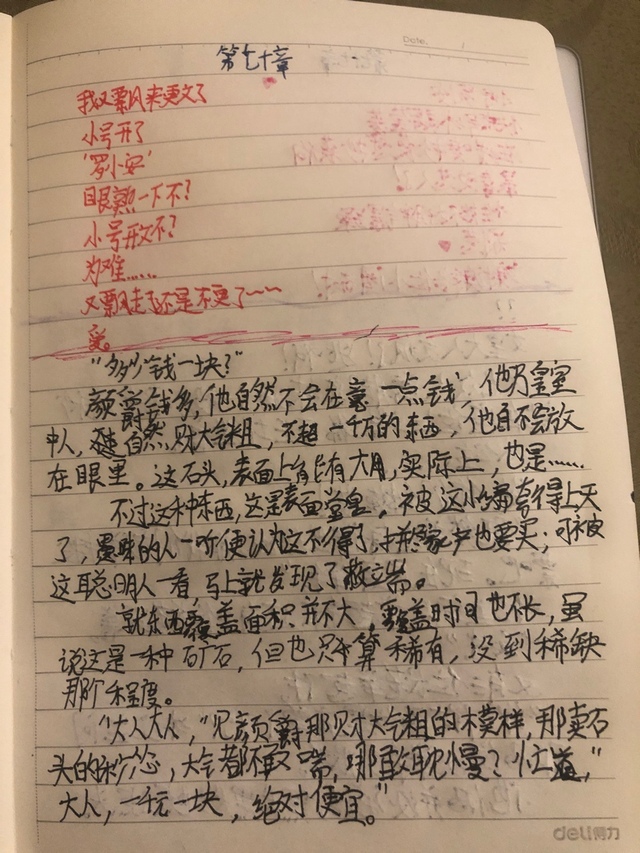 Date.
第七十章
我又飘来更文了
小号开了
‘罗小安’
眼熟一下不？
小号开文不？
为难……
又飘走了还是不更了~~
爱。
“多少钱一块？”
颜爵钱多，他自然不会在意一点钱，他乃皇室
中人，自然财大气粗，不超一千万的东西，他自不会放
在眼里。这石头，表面上有六月，实际上，也是……
不过这种东西，这是表面堂皇。被这小贩夸得上天
了，愚昧的人一听便认为这不得了，拼家产也要买；可被
这聪明人一看，马上就发现了敝端。
就东西覆盖面积并不大，覆盖时间也不长，虽
说这是一种矿石，但也只算稀有，没到稀缺
那个程度。
“大人大人，”见颜爵那财大气粗的模样，那卖石
头的，大气都不敢喘，哪敢耽慢？忙道，“
大人，一千元一块，绝对便宜。”
deli得力